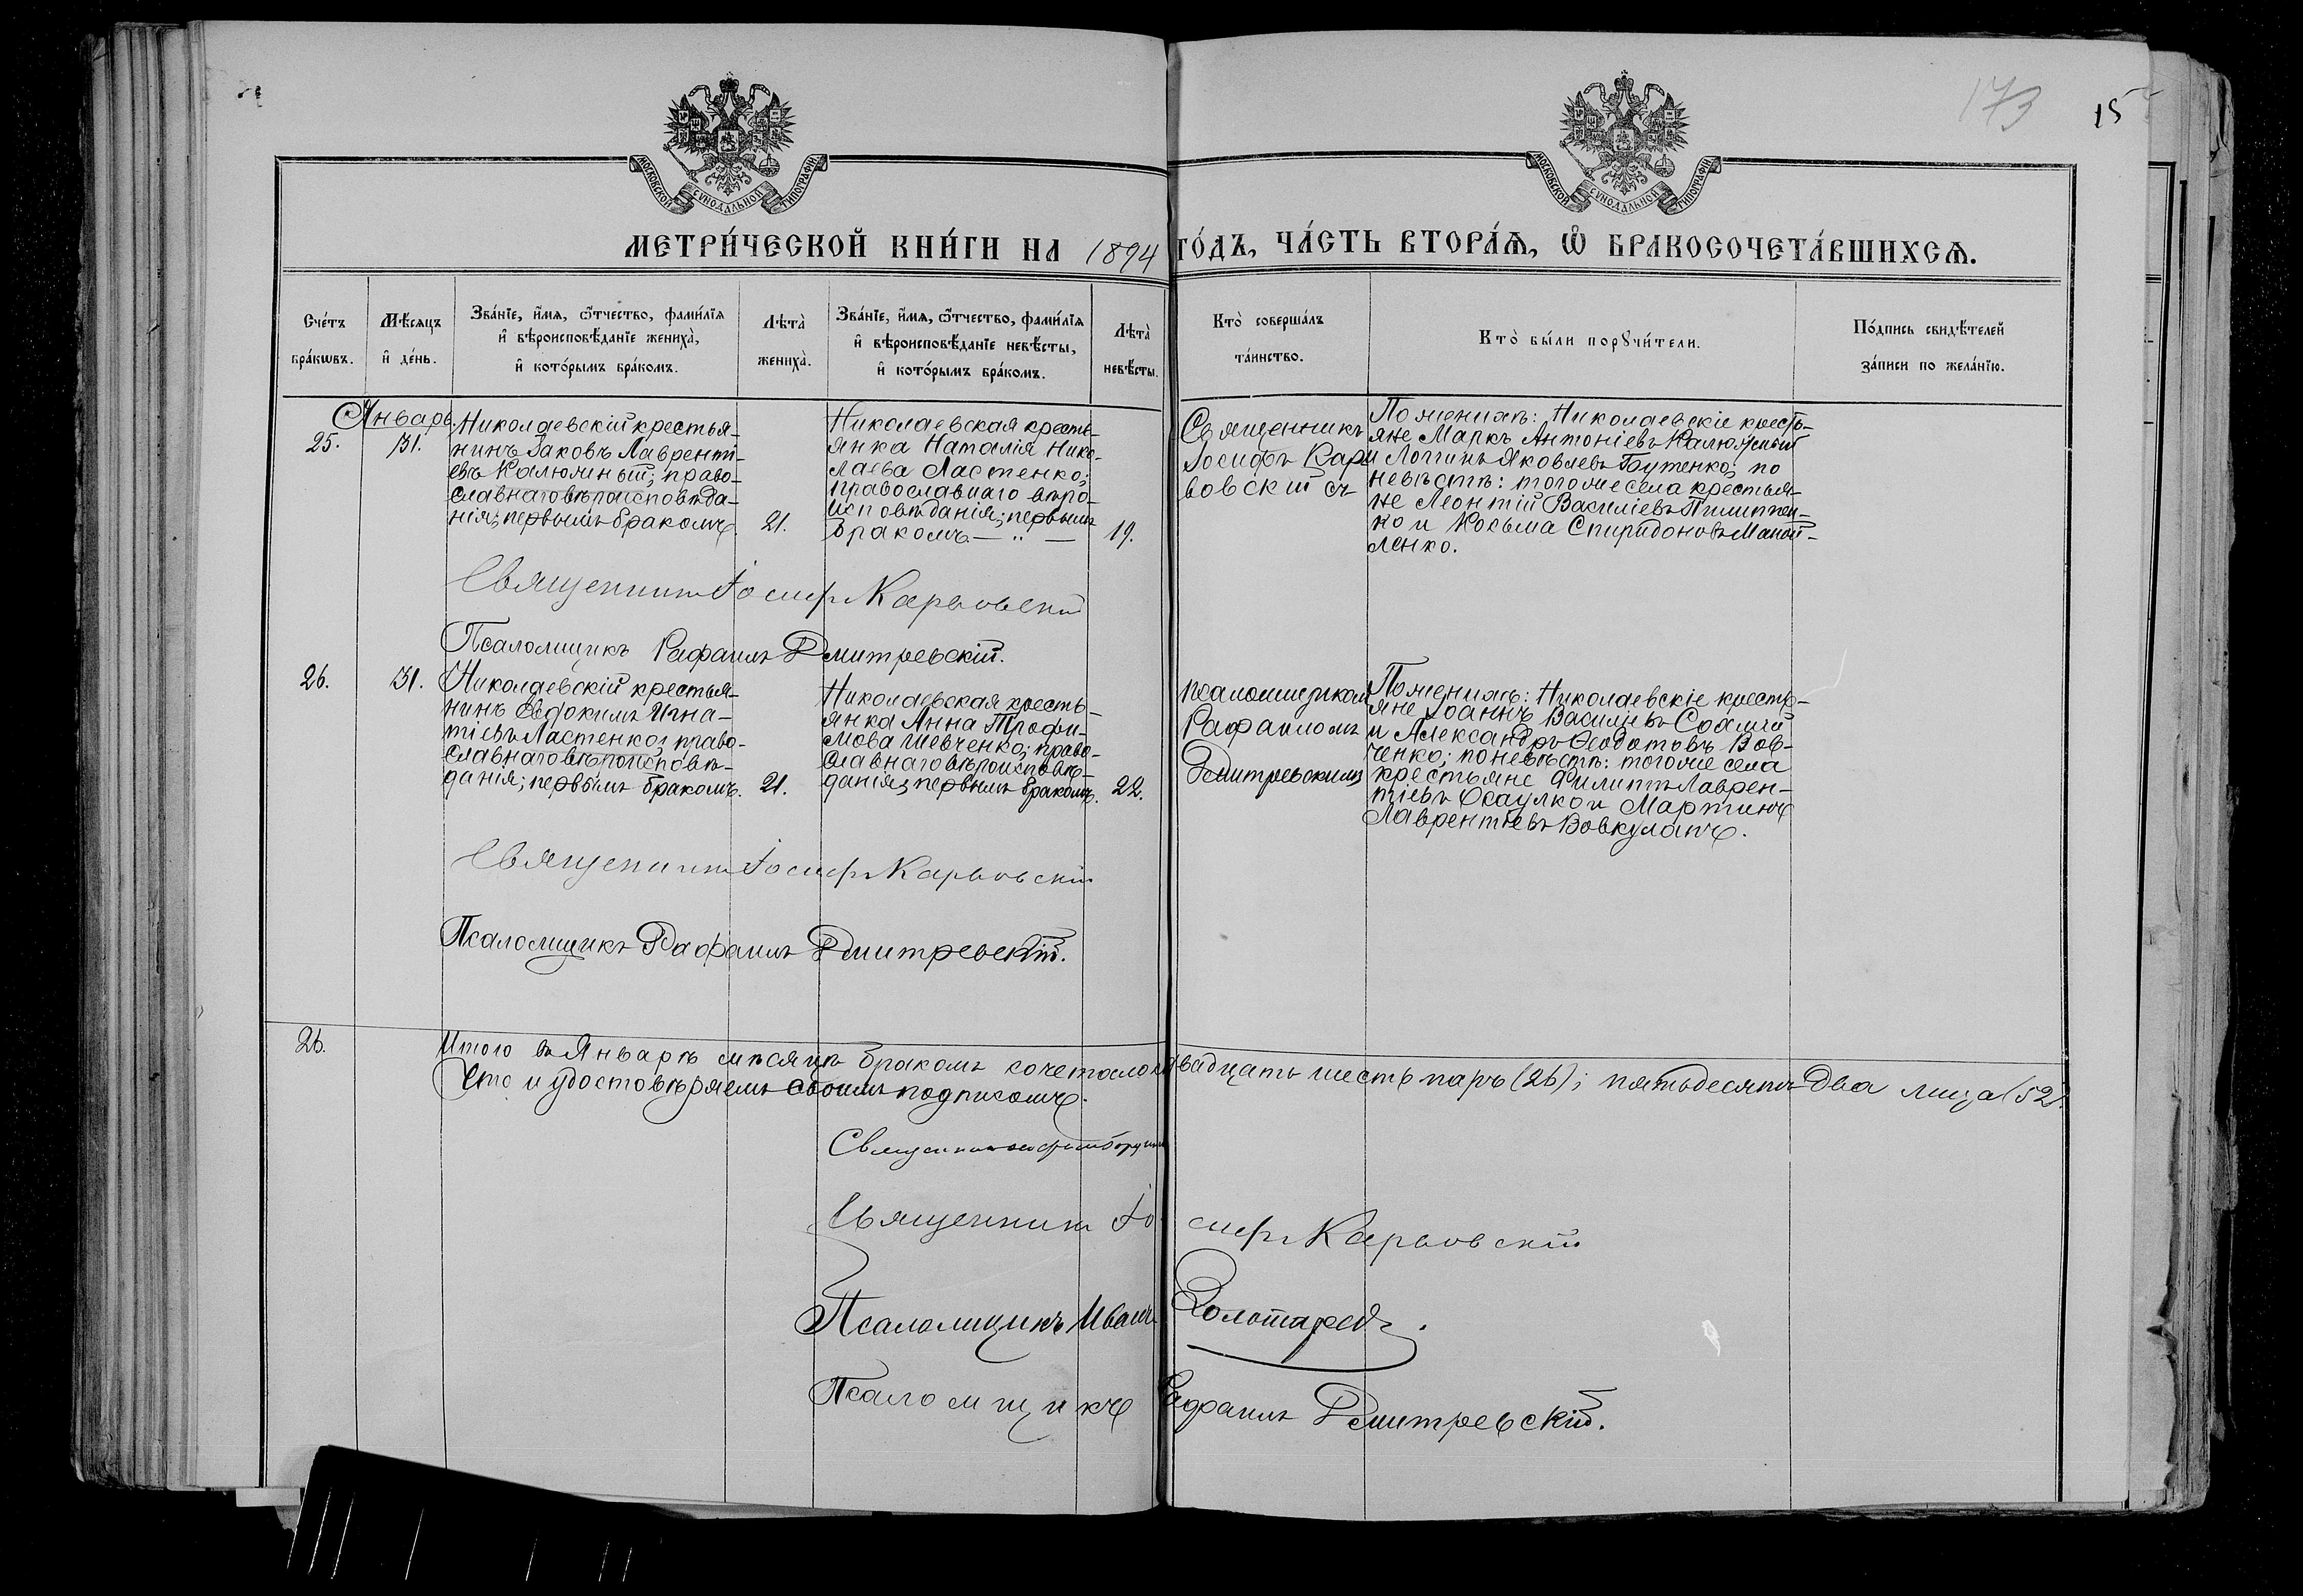 173
15
МОСКОВСКОЙ СѴНОДАЛЬНОЙ ТИПОГРАФІИ
МОСКОВСКОЙ СѴНОДАЛЬНОЙ ТИПОГРАФІИ
МЕТРИ́ЧЕСКОЙ КНИ́ГИ НА 1894 ГО́ДЪ, ЧА́СТЬ ВТОРА́Ѧ, Ѽ БРАКОСОЧЕТА́ВШИХСѦ.
Сче́тъ бра́кѡвъ.
Мѣ́сѧцъ и҆ де́нь.
Зва́нїе, и҆́мѧ, ѻ҆́тчество, фами́лїѧ
и҆ вѣроисповѣ́данїе жениха̀,
и҆ кото́рымъ бра́комъ.
Лѣта̀ жениха̀.
Зва́нїе, и҆́мѧ, ѻ҆́тчество, фами́лїѧ
и҆ вѣроисповѣ́данїе невѣ́сты,
и҆ кото́рымъ бра́комъ.
Лѣта̀ невѣ́сты.
Кто̀ соверша́лъ
та́инство.
Кто̀ бы́ли порꙋчи́тели.
По́дпись свидѣ́телей
за́писи по жела́нїю.
Январь
25.
31.
Николаевскій крестья-
нинъ Іаковъ Лаврентi-
евъ Калюжный; право-
славнаго вѣроисповѣда-
нія; первымъ бракомъ.
21.
Николаевская кресть-
янка Наталія Нико-
лаева Ластенко;
православнаго вѣро-
исповѣданія; первымъ
бракомъ. — „ —
19.
Священникъ
Іосифъ Карь
вовскій съ
По женихѣ: Николаевскіе кресть-
яне Маркъ Антоніевъ Калюжный
и Логгинъ Яковлевъ Бутенко; по
невѣстѣ: того же села крестья-
не Леонтій Василіевъ Пилиппен-
ко и Косьма Спиридоновъ Маной-
ленко.
Священникъ Іосифъ Карьовскій
Псаломщикъ Рафаилъ Дмитревскій.
26.
31.
Николаевскій крестья-
нинъ Евдокимъ Игна-
тіевъ Ластенко; право-
славнаго вѣроисповѣ-
данія; первымъ бракомъ.
21.
Николаевская кресть-
янка Анна Трофи-
мова Шевченко; право-
славнаго вѣроисповѣ-
данія; первымъ бракомъ.
22.
псаломщикомъ
Рафаиломъ
Дмитревскимъ
По женихѣ: Николаевскіе кресть-
яне Іоаннъ Василіевъ
и Александръ Ѳеодотовъ Вов-
ченко; по невѣстѣ: того же села
крестьяне Филиппъ Лаврен-
тіевъ Осаулко и Мартинъ
Лаврентіевъ Вовкулапъ.
Священникъ Іосифъ Карьовскій
Псаломщикъ Рафаилъ Дмитревскій.
26.
Итого въ Январѣ мѣсяцѣ бракомъ сочеталось двадцать шесть паръ (26); пятьдесятъ два лица (52).
Что и удостовѣряемъ своимъ подписомъ.
Священникъ
Священникъ Іосифъ Карьовскій
Псаломщикъ Иванъ Золотаревъ.
Псаломщикъ Рафаилъ Дмитревскій.